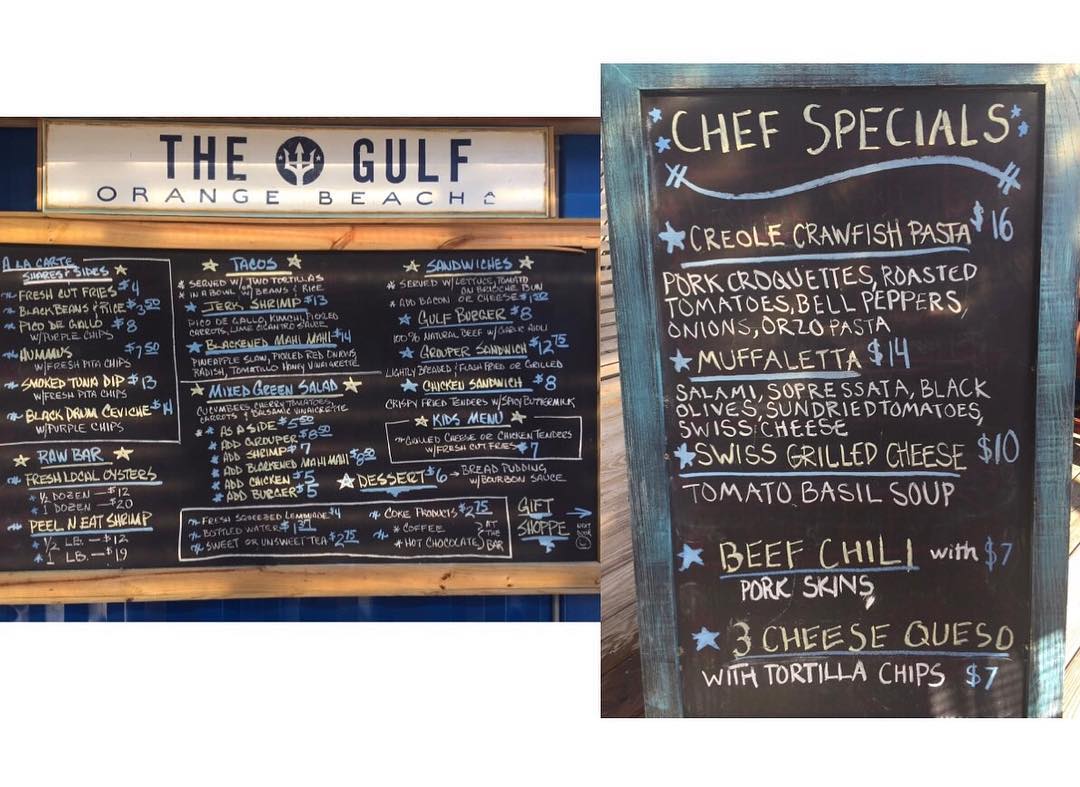 THE GULF
ORANGE BEACH
A LA CARTE
SHARES & SIDES
FRESH CUT FRIES $4
BLACK BEANS & RICE $3.50
PICO DE GALLO $8
W/PURPLE CHIPS
HUMMUS $7.50
W/FRESH PITA CHIPS
SMOKED TUNA DIP $13
W/FRESH PITA CHIPS
BLACK DRUM CEVICHE $14
W/PURPLE CHIPS
RAW BAR
FRESH LOCAL OYSTERS
½ DOZEN — $12
1 DOZEN — $20
PEEL N EAT SHRIMP
½ LB. — $12
1 LB. — $19
TACOS
* SERVED W/ TWO TORTILLAS
* IN A BOWL W/ BEANS & RICE
JERK SHRIMP $13
PICO DE GALLO, KIMCHI, PICKLED
CARROTS, LIME CILANTRO SAUCE
BLACKENED MAHI MAHI $14
PINEAPPLE SLAW, PICKLED RED ONIONS,
RADISH, TOMATILLO HONEY VINAIGRETTE
MIXED GREEN SALAD
CUCUMBERS, CHERRY TOMATOES,
CARROTS & BALSAMIC VINAIGRETTE
* AS A SIDE $5.50
* ADD GROUPER $8.50
* ADD SHRIMP $7
* ADD BLACKENED MAHI MAHI $8.50
* ADD CHICKEN $5
* ADD BURGER $5
SANDWICHES
* SERVED W/ LETTUCE, TOMATO
ON BRIOCHE BUN
* ADD BACON OR CHEESE
GULF BURGER $8
100% NATURAL BEEF W/GARLIC AIOLI
GROUPER SANDWICH $12.75
LIGHTLY BREADED & FLASH FRIED OR GRILLED
CHICKEN SANDWICH $8
CRISPY FRIED TENDERS W/SPICY BUTTERMILK
KIDS MENU
GRILLED CHEESE OR CHICKEN TENDERS
W/FRESH CUT FRIES $7
DESSERT $6 → BREAD PUDDING,
W/BOURBON SAUCE
FRESH SQUEEZED LEMONADE $4
BOTTLED WATER
SWEET OR UNSWEET TEA $2.75
COKE PRODUCTS $2.75
* COFFEE
* HOT CHOCOLATE
} AT THE BAR
GIFT
SHOPPE →
NEXT
DOOR
CHEF SPECIALS
CREOLE CRAWFISH PASTA $16
PORK CROQUETTES, ROASTED
TOMATOES, BELL PEPPERS,
ONIONS, ORZO PASTA
MUFFALETTA $14
SALAMI, SOPRESSATA, BLACK
OLIVES, SUNDRIED TOMATOES,
SWISS CHEESE
SWISS GRILLED CHEESE $10
TOMATO BASIL SOUP
BEEF CHILI with $7
PORK SKINS
3 CHEESE QUESO
WITH TORTILLA CHIPS $7